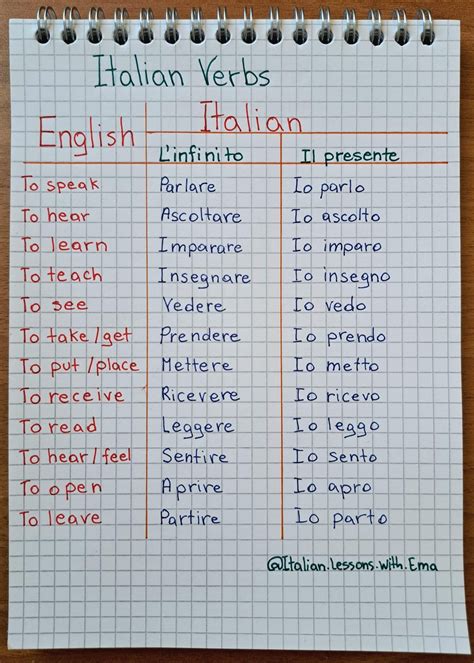 Italian Verbs
English Italian
L'infinito Il presente
To speak Parlare Io parlo
To hear Ascoltare Io ascolto
To learn Imparare Io imparo
To teach Insegnare Io insegno
To see Vedere Io vedo
To take/get Prendere Io prendo
To put/place Mettere Io metto
To receive Ricevere Io ricevo
To read Leggere Io leggo
To hear/feel Sentire Io sento
To open Aprire Io apro
To leave Partire Io parto
@Italian.Lessons.with.Ema